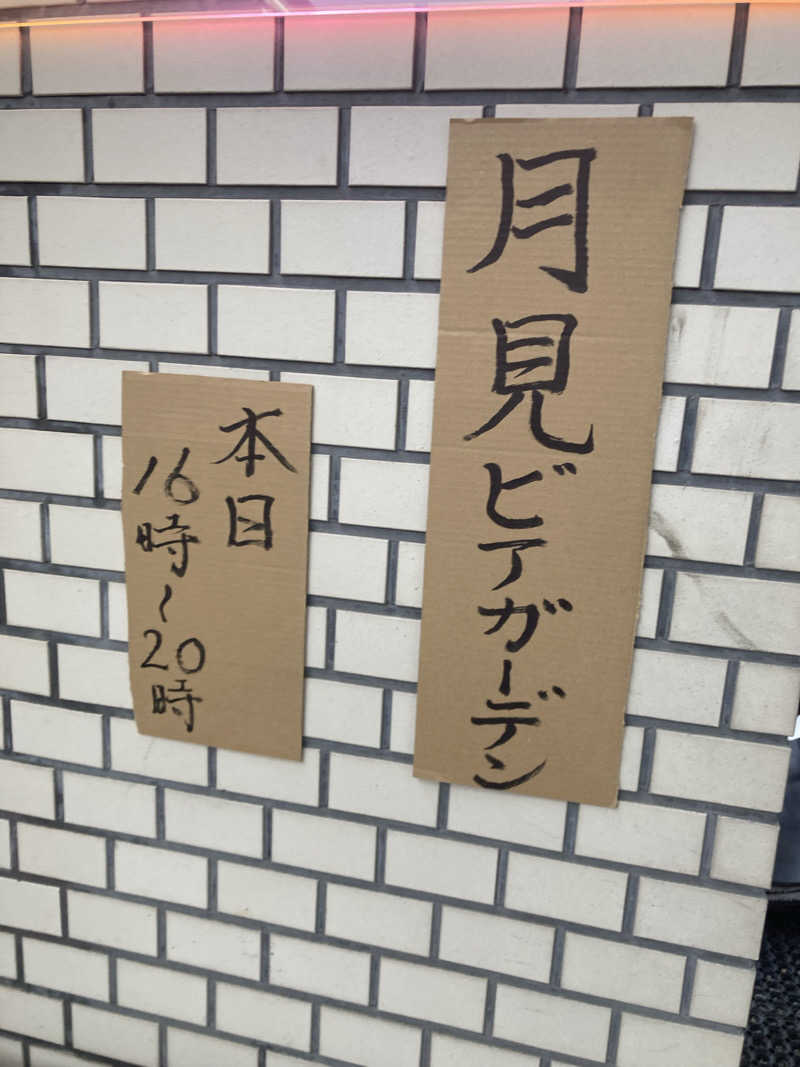 月見ビアガーデン
本日
16時～20時